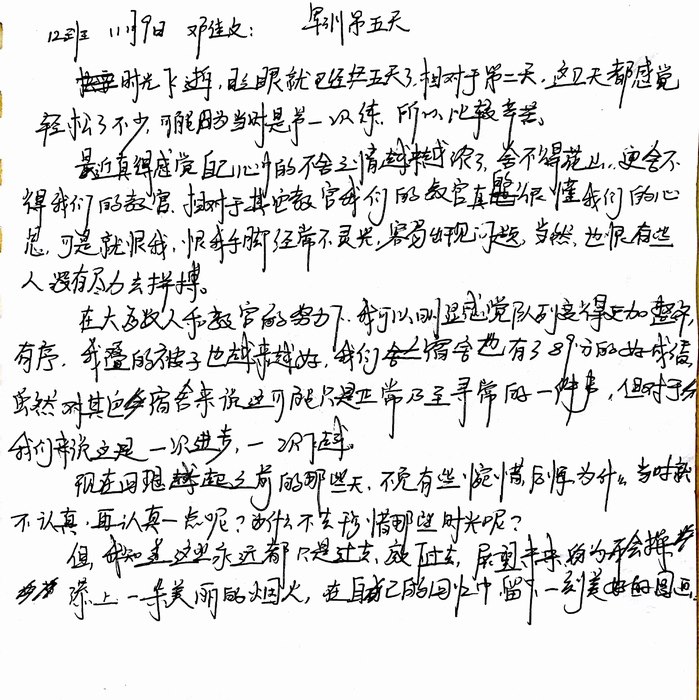 12班 11月9日 邓佳文: 军训第五天
时光飞逝,眨眼就已经是第五天了,相对于第二天,这几天都感觉
轻松了不少,可能因为当时是第一次练,所以比较辛苦。
最近真得感觉自己心中的不舍之情越来越浓了,舍不得花山,更舍不
得我们的教官,相对于其它教官我们的教官真的很懂我们的心
思,可是就恨我,恨我手脚经常不灵光,容易出现问题,当然,也恨有些
人没有尽力去拼搏。
在大多数人和教官的努力下,我可以明显感觉队列变得更加整齐,
有序,我叠的被子也越来越好,我们宿舍也有了89分的好成绩,
虽然对其它宿舍来说这可能只是正常乃至寻常的一件事,但对于
我们来说这是一次进步,一次飞越。
现在回想起之前的那些天,不免有些惋惜,后悔为什么当时就
不认真,再认真一点呢?为什么不去珍惜那些时光呢?
但,我知道这些永远都只是过去,放下过去,展望未来,为军会操
添上一朵美丽的烟火,在自己的回忆中留下一刻美好的图画.